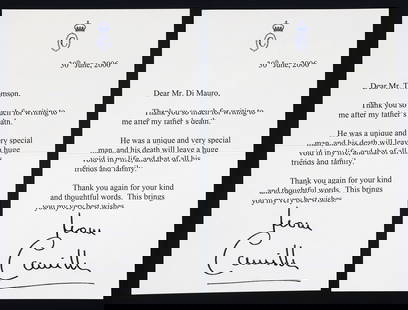 30th June, 2006
Dear Mr. T
omson,
Thank you so much for writing to
me after my father's death.
He was a unique and very special
man, and his death will leave a huge
void in my life, and that of all his
friends and family.
Thank you again for your kind
and thoughtful words. This brings
you my very best wishes
Camilla
30th June, 2006
Dear Mr. Di Mauro,
Thank you so much for writing to
me after my father's death.
He was a unique and very special
man, and his death will leave a huge
void in my life, and that of all his
friends and family.
Thank you again for your kind
and thoughtful words. This brings
you my very best wishes
Camilla